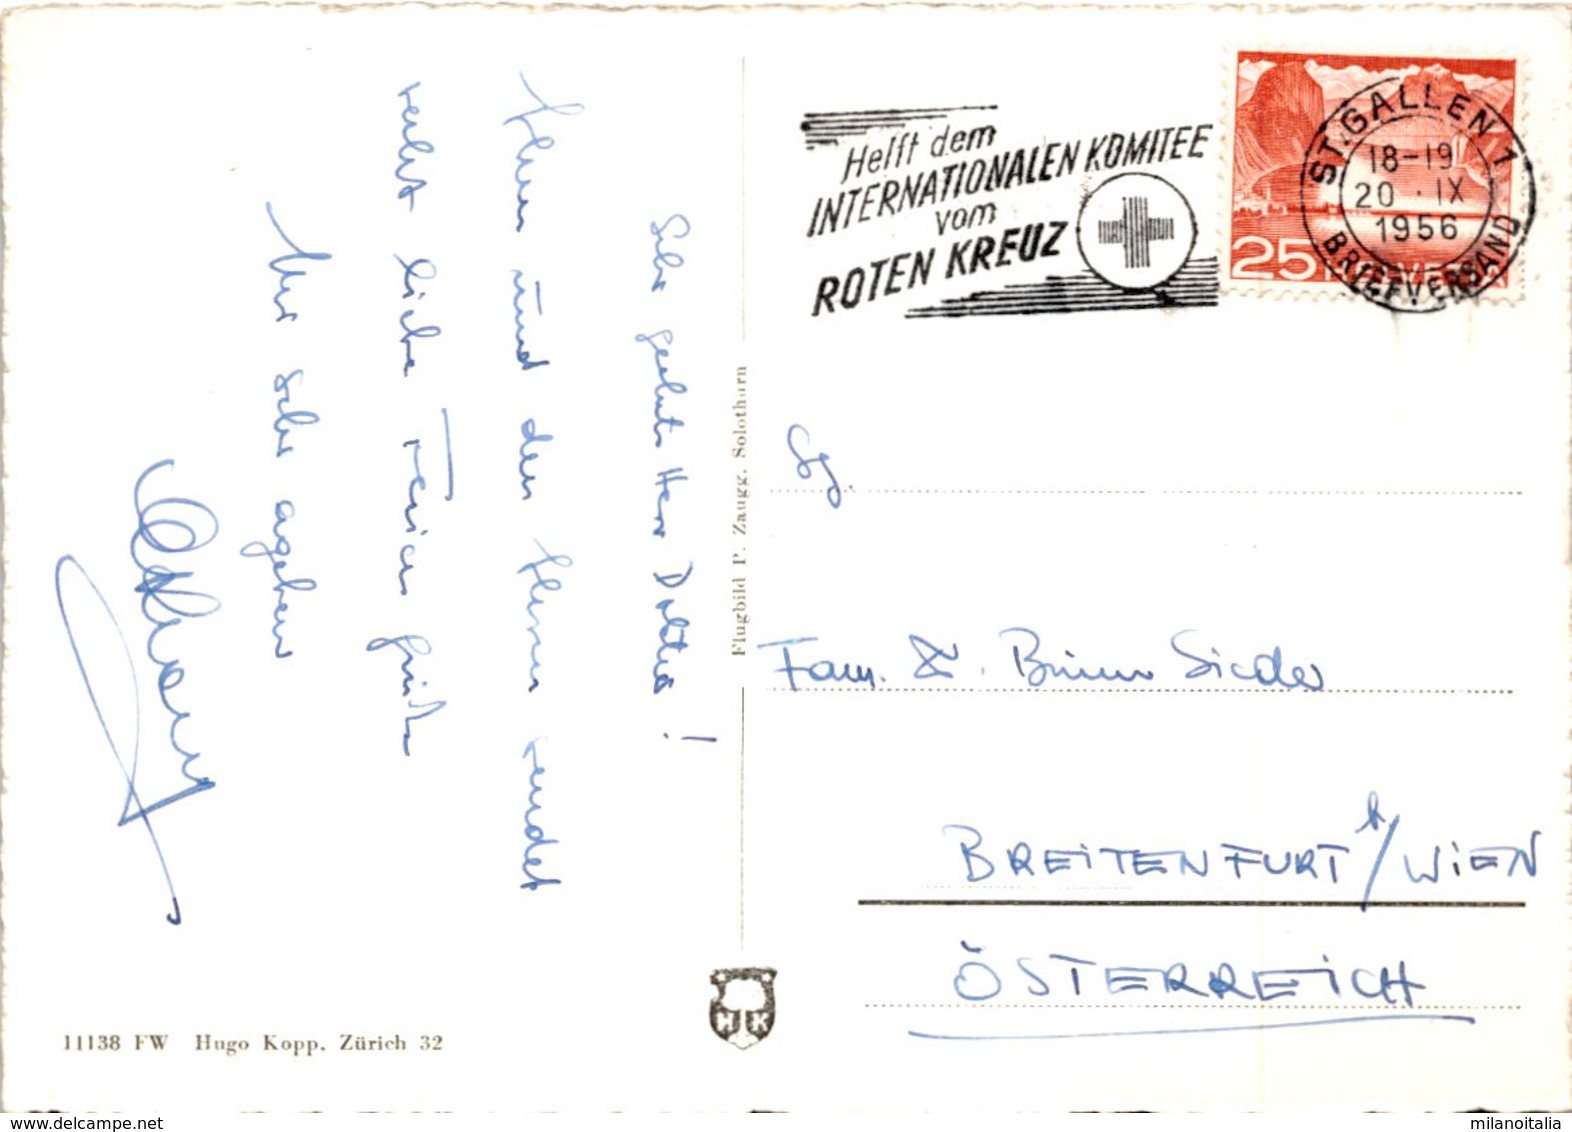 Sehr geehrter Herr Doktor!
Ihnen und den Ihren sendet
recht liebe Feriengrüße
Ihr sehr ergebener
Helft dem
INTERNATIONALEN KOMITEE
vom
ROTEN KREUZ
ST. GALLEN 1
18-19
20. IX
1956
BRIEFVERSAND
25 HELVETIA
Flugbild P. Zaugg. Solothurn
Fam.
BREITENFURT b/WIEN
ÖSTERREICH
HK
11138 FW Hugo Kopp, Zürich 32
milanoitalia